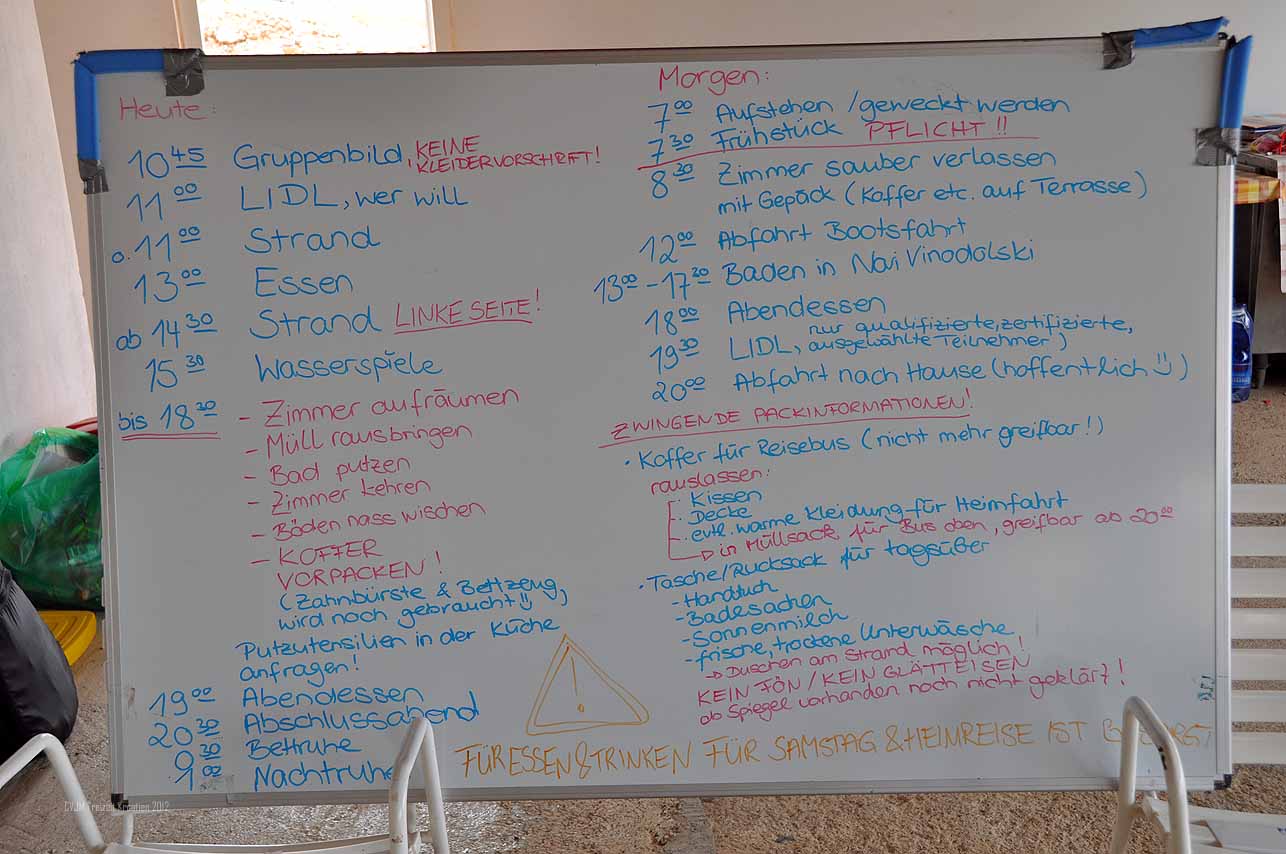 Heute:
10 45 Gruppenbild, KEINE
KLEIDERVORSCHRIFT!
11 00 LIDL, wer will
o. 11 00 Strand
13 00 Essen
ab 14 30 Strand LINKE SEITE!
15 30 Wasserspiele
bis 18 30 - Zimmer aufräumen
- Müll rausbringen
- Bad putzen
- Zimmer kehren
- Böden nass wischen
- KOFFER
VORPACKEN!
(Zahnbürste & Bettzeug,
wird noch gebraucht)
Putzutensilien in der Küche
anfragen!
19 00 Abendessen
20 30 Abschlussabend
0 30 Bettruhe
1 02 Nachtruhe
Morgen:
7 00 Aufstehen / geweckt werden
7 30 Frühstück PFLICHT!!
8 30 Zimmer sauber verlassen
mit Gepäck (Koffer etc. auf Terrasse)
12 00 Abfahrt Bootsfahrt
13 00 - 17 30 Baden in Novi Vinodolski
18 00 Abendessen
19 30 LIDL, nur qualifizierte, zertifizierte,
ausgewählte Teilnehmer)
20 00 Abfahrt nach Hause (hoffentlich ü)
ZWINGENDE PACKINFORMATIONEN!
• Koffer für Reisebus (nicht mehr greifbar!)
rauslassen:
- Kissen
- Decke
- evtl. warme Kleidung für Heimfahrt
→ in Müllsack, für Bus oben, greifbar ab 20 00
• Tasche/Rucksack für tagsüber
- Handtuch
- Badesachen
- Sonnenmilch
- frische, trockene Unterwäsche
→ Duschen am Strand möglich!
KEIN FÖN / KEIN GLÄTTEISEN
ob Spiegel vorhanden noch nicht geklärt!
!
FÜR ESSEN & TRINKEN FÜR SAMSTAG & HEIMREISE IST
CVJM Freizeit Kroatien 2012